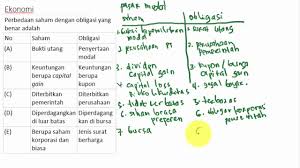 Ekonomi
Perbedaan saham dengan obligasi yang
benar adalah
No Saham Obligasi
(A) Bukti utang Penyertaan
modal
(B) Keuntungan
berupa capital
gain
Keuntungan
berupa
kupon
(C) Diterbitkan
pemerintah
Diterbitkan
perusahaan
(D) Diperdagangkan
di luar batas
Diperdagang
kan di bursa
(E) Berupa saham
korporasi dan
biasa
Jenis surat
berharga
pasar modal
saham
2. perusahaan
3. dividen
capital gain
4. capital loss
5. tidak terbatas
6. saham biasa
preferen
7. bursa
obligasi
1. surat utang
2. perusahaan
pemerintah
3. kupon / bunga
capital gain
4. gagal bayar
5. terbatas
6. obligasi korporasi